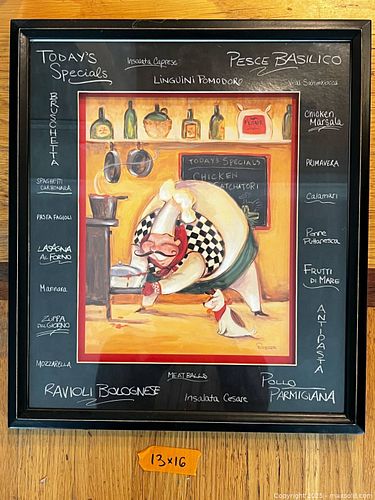 TODAY'S
Specials
Insalata Caprese
PESCE BASILICO
LINGUINI POMODORO
BRUSCHETTA
Chicken
Marsala
TODAY'S SPECIALS
CHICKEN
CATCHATORI
PRIMAVERA
SPAGHETTI
CARBONARA
Calamari
PASTA FAGIOLI
Penne
Puttanesca
LASAGNA
AL FORNO
FRUTTI
DI MARE
Marinara
ZUPPA
DEL GIORNO
ANTIPASTA
MOZZARELLA
MEATBALLS
RAVIOLI BOLOGNESE
Insalata Cesare
POLLO
PARMIGIANA
13x16
Copyright 2025 - maxsold.com